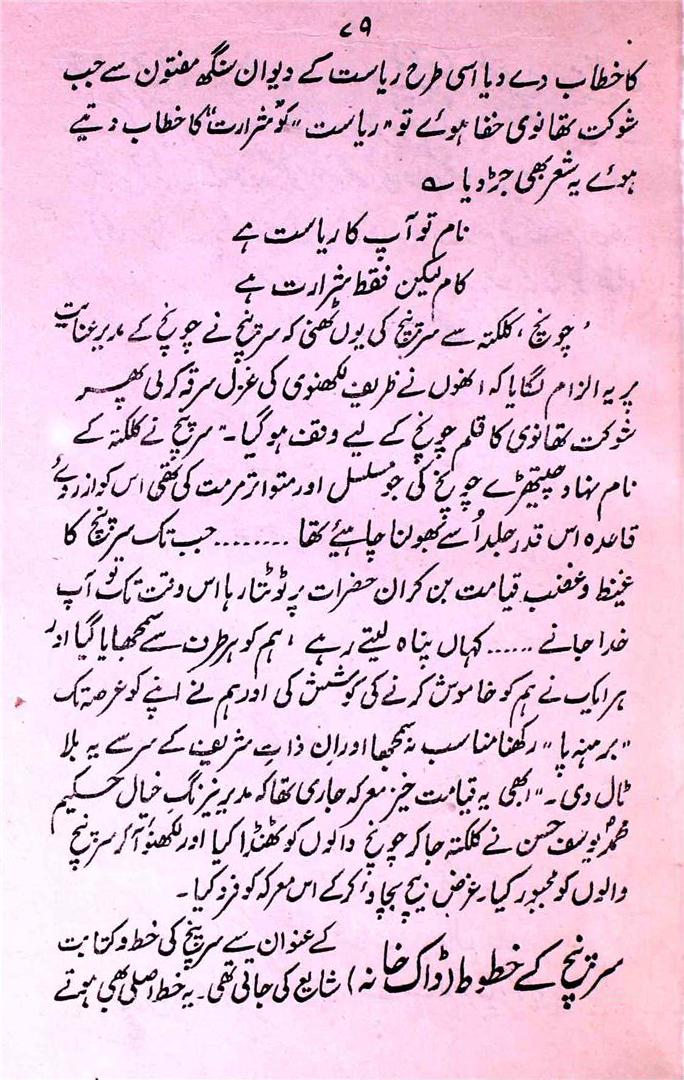 ۷۹
کا خطاب دے دیا اسی طرح ریاست کے دیوان سنگھ مفتون سے جب
شوکت تھانوی خفا ہوئے تو "ریاست" کو "شرارت" کا خطاب دیتے
ہوئے یہ شعر بھی جڑ دیا ؎
نام تو آپ کا ریاست ہے
کام لیکن فقط شرارت ہے
'چونچ' کلکتہ سے سرپنچ کی یوں ٹھنی کہ سرپنچ نے چونچ کے مدیر عنایت
پر یہ الزام لگایا کہ انھوں نے ظریف لکھنوی کی غزل سرقہ کر لی پھر
شوکت تھانوی کا قلم چونچ کے لیے وقف ہو گیا۔ "سرپنچ نے کلکتہ کے
نام نہاد چیتھڑے چونچ کی جو مسلسل اور متواتر مرمت کی تھی اس کو ازروئے
قاعدہ اس قدر جلد اُسے نہ بھولنا چاہیئے تھا ........ جب تک سرپنچ کا
غیظ و غضب قیامت بن کر ان حضرات پر ٹوٹتا رہا اس وقت تک تو آپ
خدا جانے ...... کہاں پناہ لیتے رہے، ہم کو ہر طرف سے سمجھایا گیا اور
ہر ایک نے ہم کو خاموش کرنے کی کوشش کی اور ہم نے اپنے کو عرصہ تک
"برہنہ پا" رکھنا مناسب نہ سمجھا اور ان ذاتِ شریف کے سر سے یہ بلا
ٹال دی۔" ابھی یہ قیامت خیز معرکہ جاری تھا کہ مدیر نیرنگ خیال حکیم
محمد یوسف حسن نے کلکتہ جا کر چونچ والوں کو ٹھنڈا کیا اور لکھنؤ آ کر سرپنچ
والوں کو مجبور کیا۔ غرض بیچ بچاؤ کر کے اس معرکہ کو فرو کیا۔
سرپنچ کے خطوط (ڈاک خانہ) کے عنوان سے سرپنچ کی خط و کتابت
شایع کی جاتی تھی۔ یہ خط اصلی بھی ہوتے